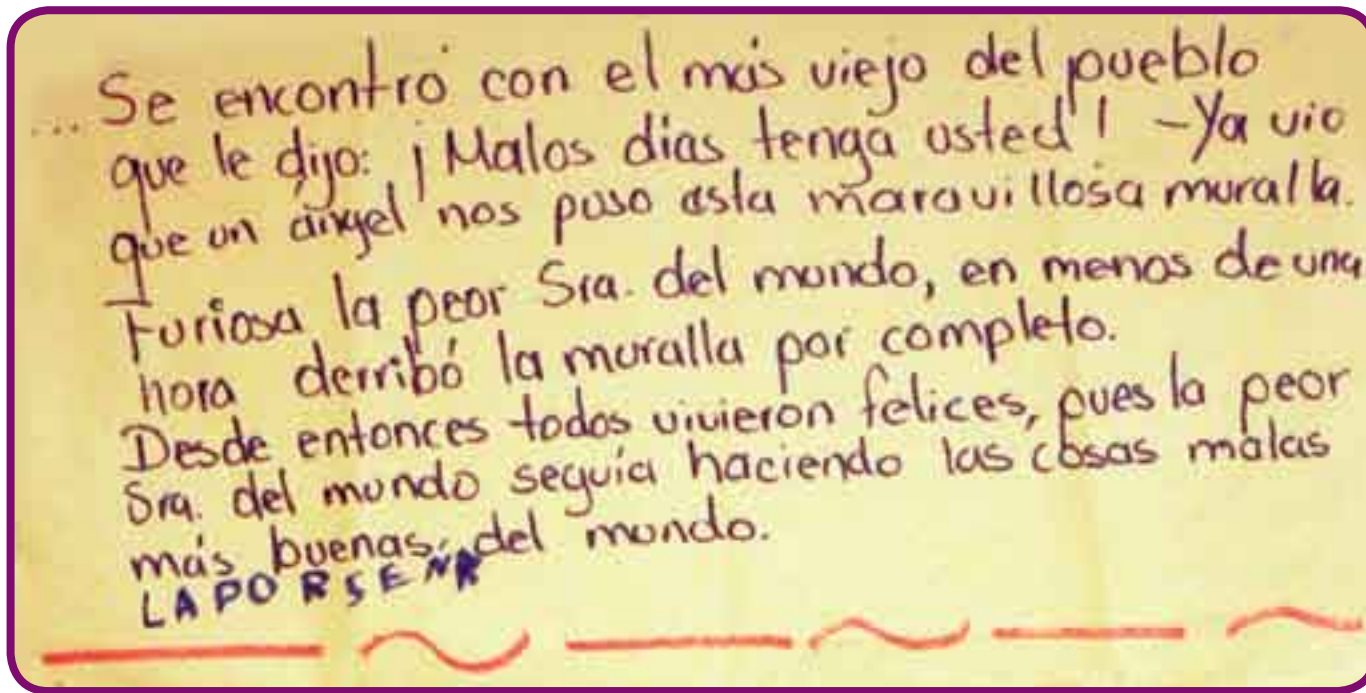 ... Se encontró con el más viejo del pueblo
que le dijo: ¡Malos días tenga usted! -Ya vio
que un ángel nos puso esta maravillosa muralla.
Furiosa la peor Sra. del mundo, en menos de una
hora derribó la muralla por completo.
Desde entonces todos vivieron felices, pues la peor
Sra. del mundo seguía haciendo las cosas malas
más buenas, del mundo.
LA PO R SEÑR